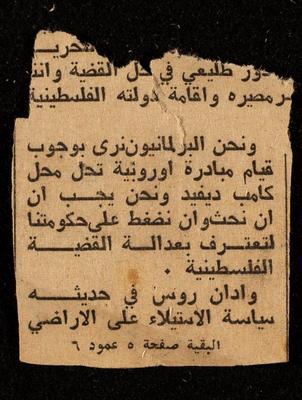 تحريـ
دور طليعي في حل القضية وانتـ
ـر مصيره واقامة دولته الفلسطينية
ونحن البرلمانيون نرى بوجوب
قيام مبادرة اوروبية تحل محل
كامب ديفيد ونحن يجب ان
ان نحث وان نضغط على حكومتنا
لتعترف بعدالـة القضيـة
الفلسطينية .
وادان روس في حديثـه
سياسة الاستيلاء على الاراضي
البقية صفحة ٥ عمود ٦